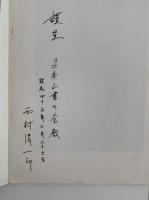 謹呈
日本山書の会殿
昭和四十五年二月二十七日
西村
一郎